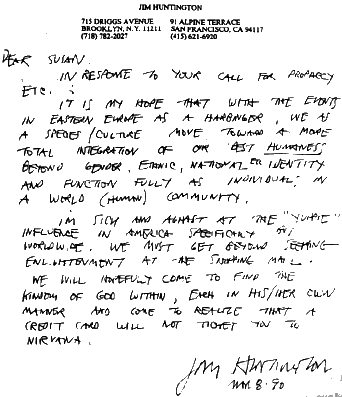 JIM HUNTINGTON
715 DRIGGS AVENUE 91 ALPINE TERRACE
BROOKLYN, N.Y. 11211 SAN FRANCISCO, CA 94117
(718) 782-2027 (415) 621-6920
DEAR SUSAN.
IN RESPONSE TO YOUR CALL FOR PROPHECY
ETC. :
IT IS MY HOPE THAT WITH THE EVENTS
IN EASTERN EUROPE AS A HARBINGER, WE AS
A SPECIES/CULTURE MOVE TOWARD A MORE
TOTAL INTEGRATION OF OUR BEST HUMANESS
BEYOND GENDER, ETHNIC, NATIONAL IDENTITY
AND FUNCTION FULLY AS INDIVIDUALS IN
A WORLD (HUMAN) COMMUNITY.
I'M SICK AND AGHAST AT THE "YUPPIE"
INFLUENCE IN AMERICA SPECIFICALLY
WORLWIDE. WE MUST GET BEYOND SEEKING
ENLIGHTENMENT AT THE SHOPPING MALL.
WE WILL HOPEFULLY COME TO FIND THE
KINGDOM OF GOD WITHIN, EACH IN HIS/HER OWN
MANNER AND COME TO REALIZE THAT A
CREDIT CARD WILL NOT TICKET YOU TO
NIRVANA.
Jim Huntington
MAR. 8. 90